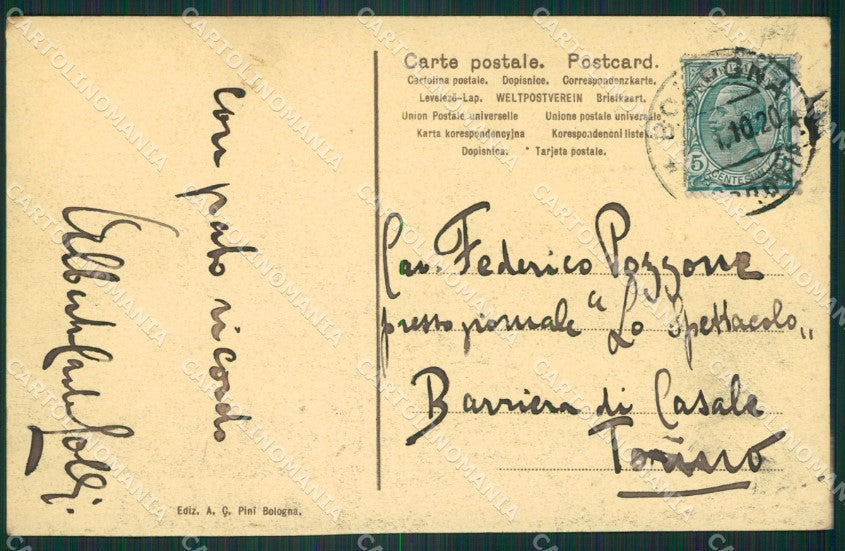 Carte postale. Postcard.
Cartolina postale. Dopisnice. Correspondenzkarte.
Levelező-Lap. WELTPOSTVEREIN Briefkaart.
Union Postale universelle Unione postale universale
Karta korespondencyjna Korespondenoni listek
Dopisnica. * Tarjeta postale.
BOLOGNA
1.10.20
5
CENTESIMI
Cav. Federico Pozzone
presso giornale "Lo Spettacolo„
Barriera di Casale
Torino
con grato ricordo
Alberto Carlo Lolli.
Ediz. A. Ç. Pini Bologna.
CARTOLINOMANIA